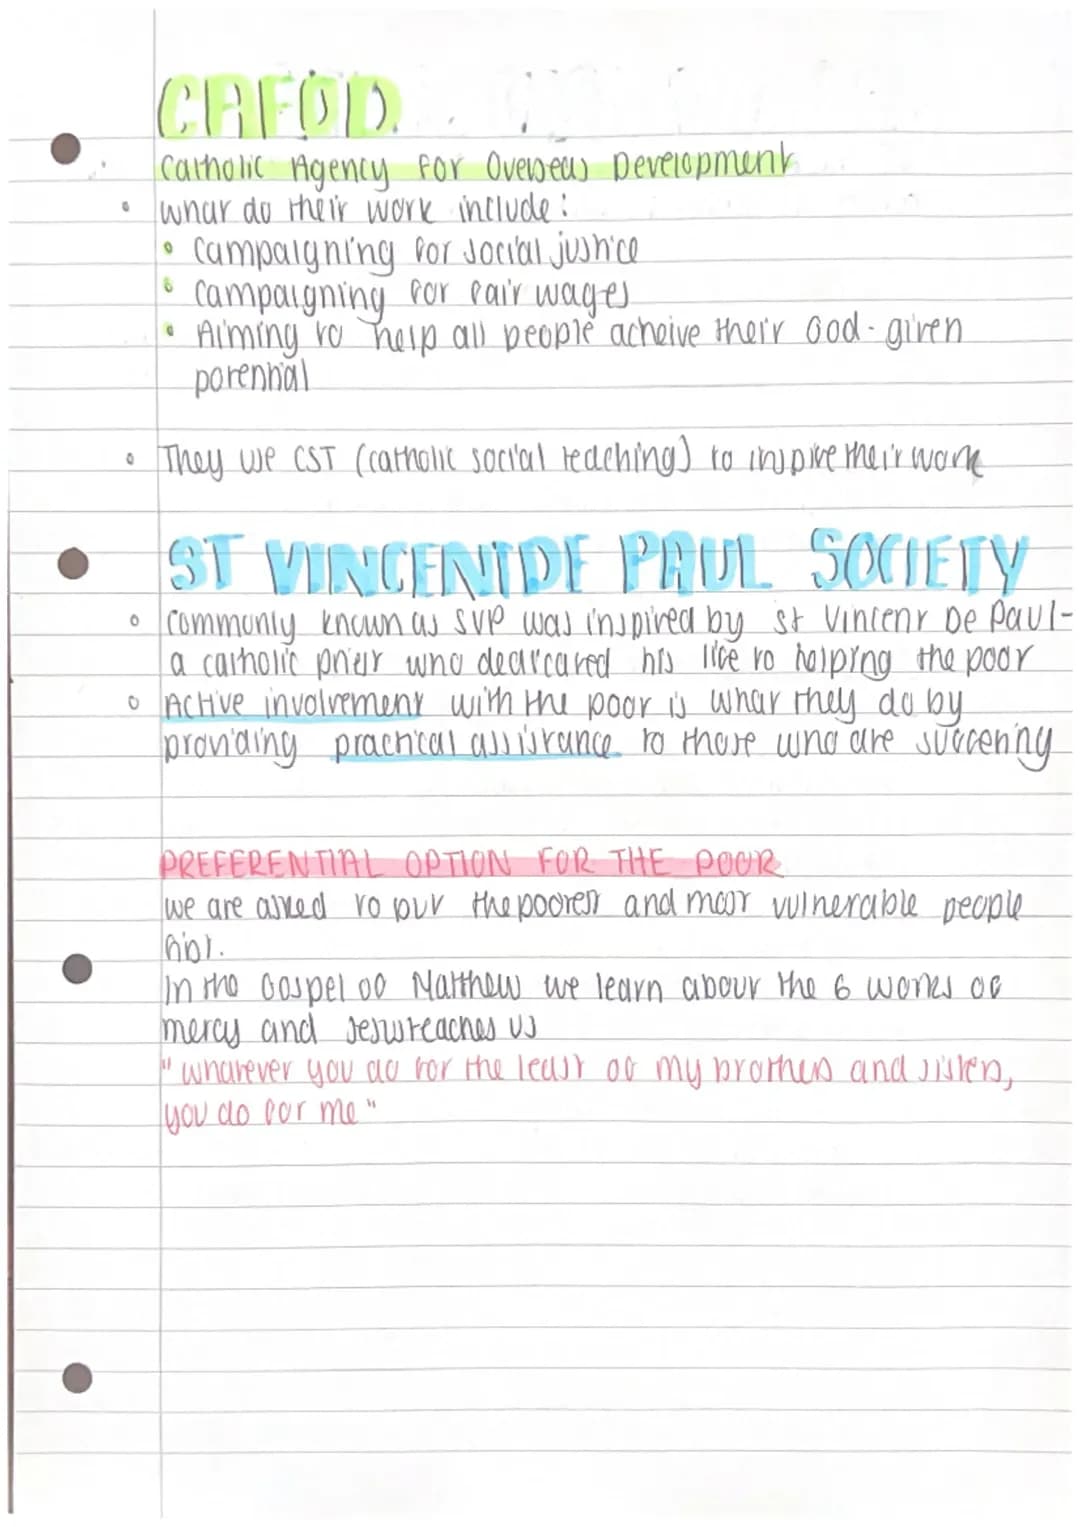 CAFOD
Catholic Agency For Overseas Development
what do their work include:
campaigning for social justice
campaigning for fair wages
Aiming to help all people acheive their God-given
potential
They use CST (catholic social teaching) to inspire their work
ST VINCENT DE PAUL SOCIETY
commonly known as SVP was inspired by St Vincent De Paul-
a catholic priest who dedicated his life to helping the poor
Active involvement with the poor is what they do by
providing practical assistance to those who are suffering
PREFERENTIAL OPTION FOR THE POOR
we are asked to put the poorest and most vulnerable people
first.
In the Gospel of Matthew we learn about the 6 works of
mercy and Jesus teaches us
"whatever you do for the least of my brothers and sisters,
you do for me"